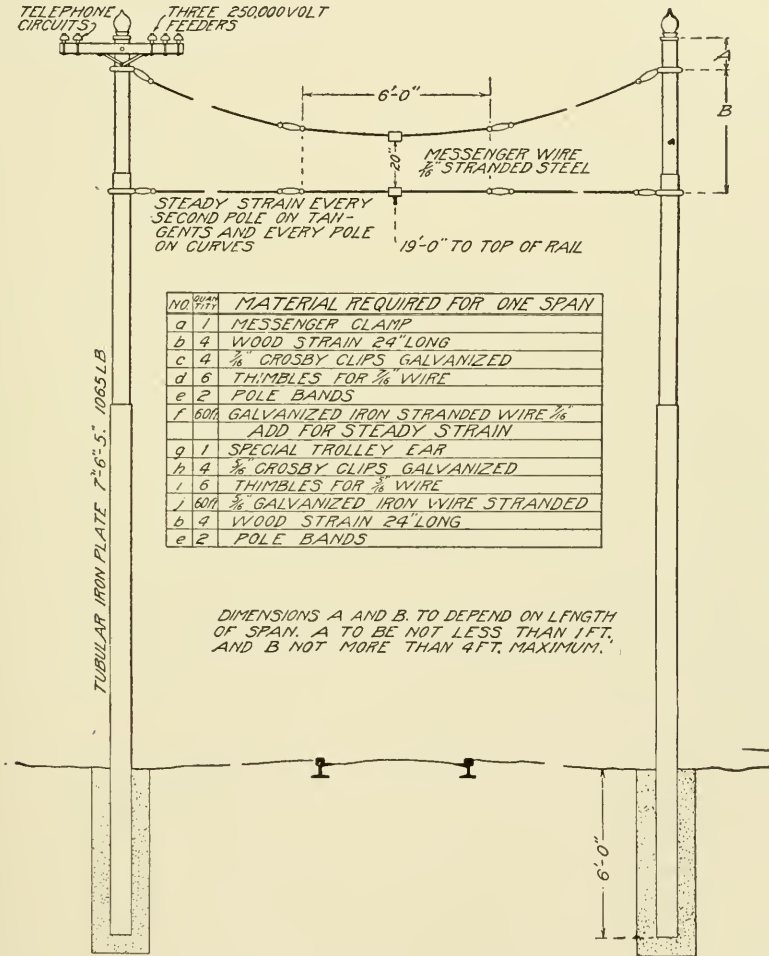 TELEPHONE
CIRCUITS
THREE 250,000 VOLT
FEEDERS
A
6'-0"
B
20"
MESSENGER WIRE
7/16" STRANDED STEEL
STEADY STRAIN EVERY
SECOND POLE ON TAN-
GENTS AND EVERY POLE
ON CURVES
19'-0" TO TOP OF RAIL
NO. QUANTITY MATERIAL REQUIRED FOR ONE SPAN
a 1 MESSENGER CLAMP
b 4 WOOD STRAIN 24" LONG
c 4 7/16" CROSBY CLIPS GALVANIZED
d 6 THIMBLES FOR 7/16" WIRE
e 2 POLE BANDS
f 60ft GALVANIZED IRON STRANDED WIRE 7/16"
ADD FOR STEADY STRAIN
g 1 SPECIAL TROLLEY EAR
h 4 5/16" CROSBY CLIPS GALVANIZED
i 6 THIMBLES FOR 5/16" WIRE
j 60ft 5/16" GALVANIZED IRON WIRE STRANDED
b 4 WOOD STRAIN 24" LONG
e 2 POLE BANDS
TUBULAR IRON PLATE 7"-6"-5." 1065 LB
DIMENSIONS A AND B. TO DEPEND ON LENGTH
OF SPAN. A TO BE NOT LESS THAN 1 FT.
AND B NOT MORE THAN 4 FT. MAXIMUM.
6'-0"